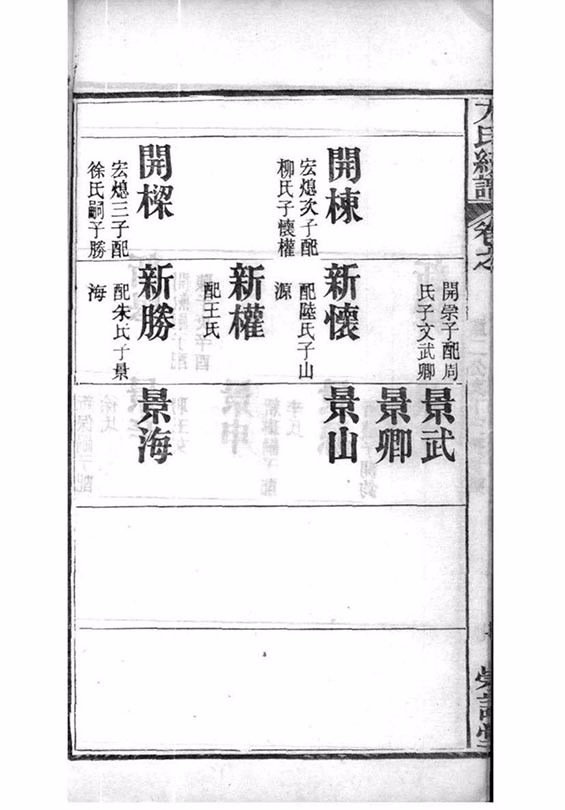 氏統譜
卷之
開棟
宏熄次子配
柳氏子懷權
開樑
宏熄三子配
徐氏嗣子勝
開崇子配周
氏子文武卿
新懷
配陸氏子山
源
新權
配王氏
新勝
配朱氏子景
海
景武
景卿
景山
景海